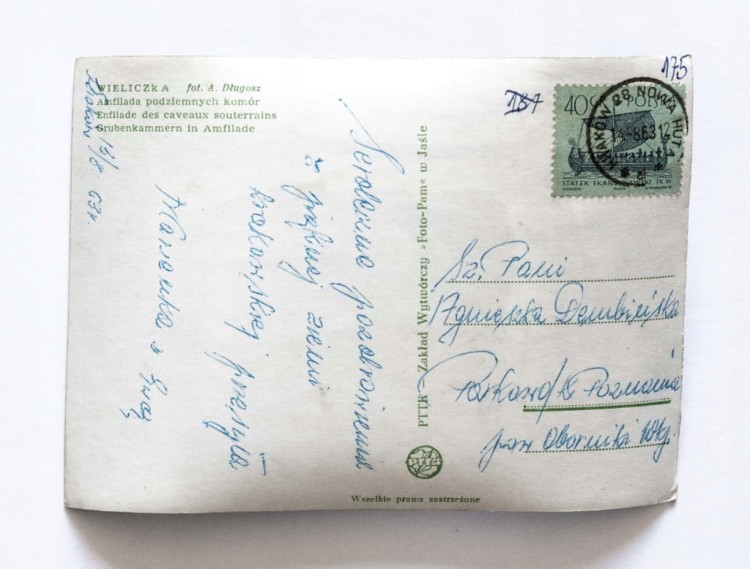 WIELICZKA fot. A. Długosz
Amfilada podziemnych komór
Enfilade des caveaux souterrains
Grubenkammern in Amfilade
Kraków 13/8 63 r.
Serdeczne pozdrowienia
z pięknej ziemi
krakowskiej przesyła
z Ewą
PTTK — Zakład Wytwórczy »Foto-Pam« w Jaśle
Wszelkie prawa zastrzeżone
175
187
40 GR POLSKA
STATEK SKANDYNAWSKI IX W.
KRAKÓW 28 NOWA HUTA
14-8.63 12
Sz. Pani
Agnieszka Dembińska
k. Poznania
pow Oborniki Wlkp.